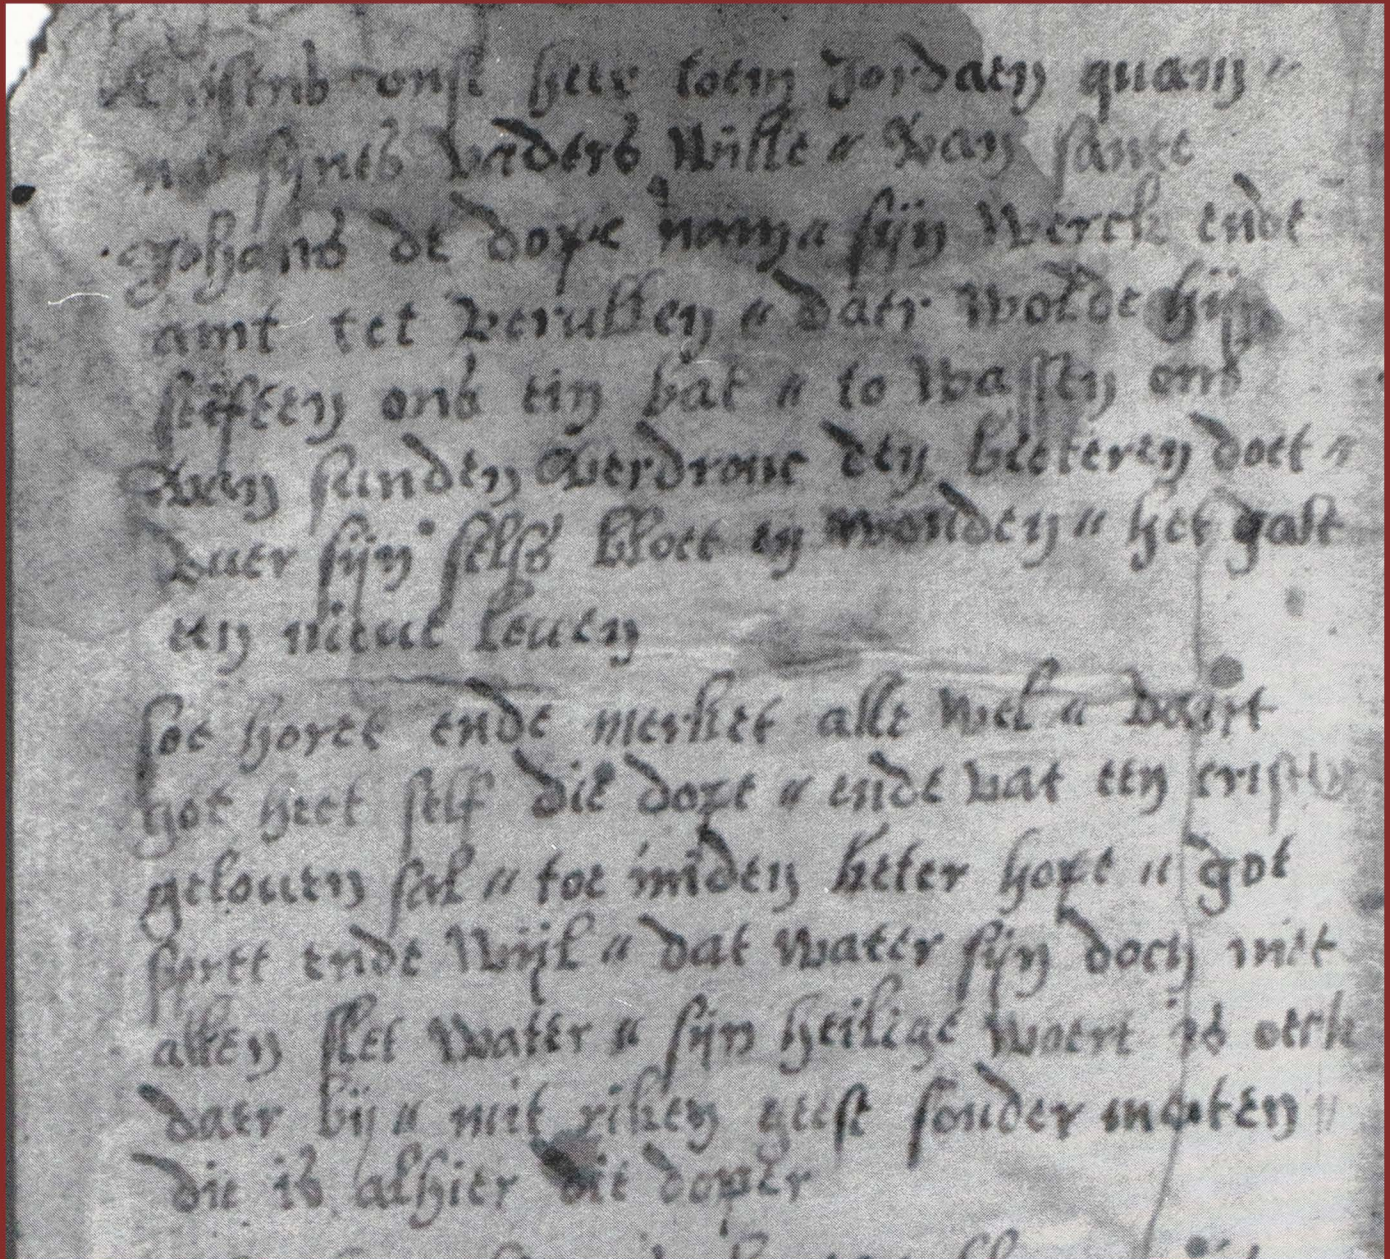 Cristus onse heer totm Jordaen quam "
na sijnes vaders wille " Van sante
Johans de dope nam " sijn werck ende
amt tet veruллen " daer wolde hij
stiften ons ein bat " to wassen ons
Van sunden Verdrenc den bitteren doet "
duer sijn selfs bloet en wonden " het galt
een nieue leuen
soe horet ende merket alle wel " Wairt
got heet self die dope " ende wat een
gelouen sal " toe miden keter hope " got
sprect ende wijl " dat water sijn doch niet
allen slet water " sijn heilige woert is oeck
daer bij " mit riken geest sonder maten "
die is alhier dit doper